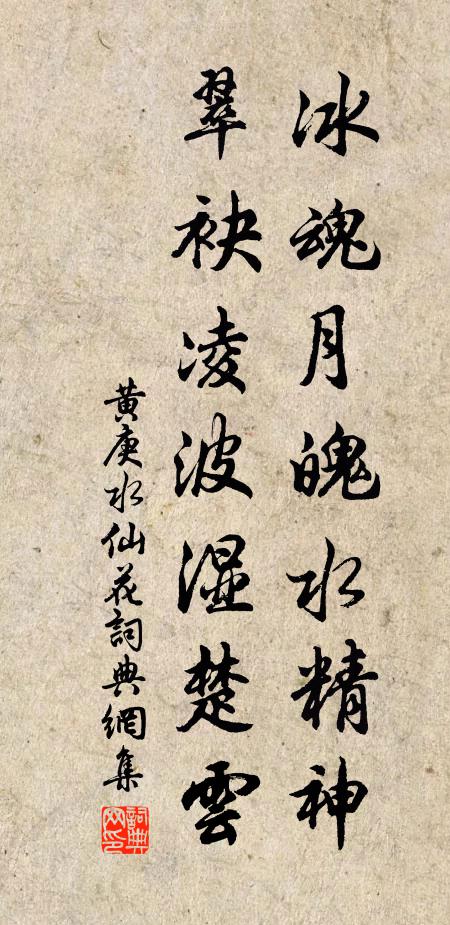 冰魂月魄水精神
翠袂凌波湿楚雲
黄庚水仙花詞典網集
詞典網印